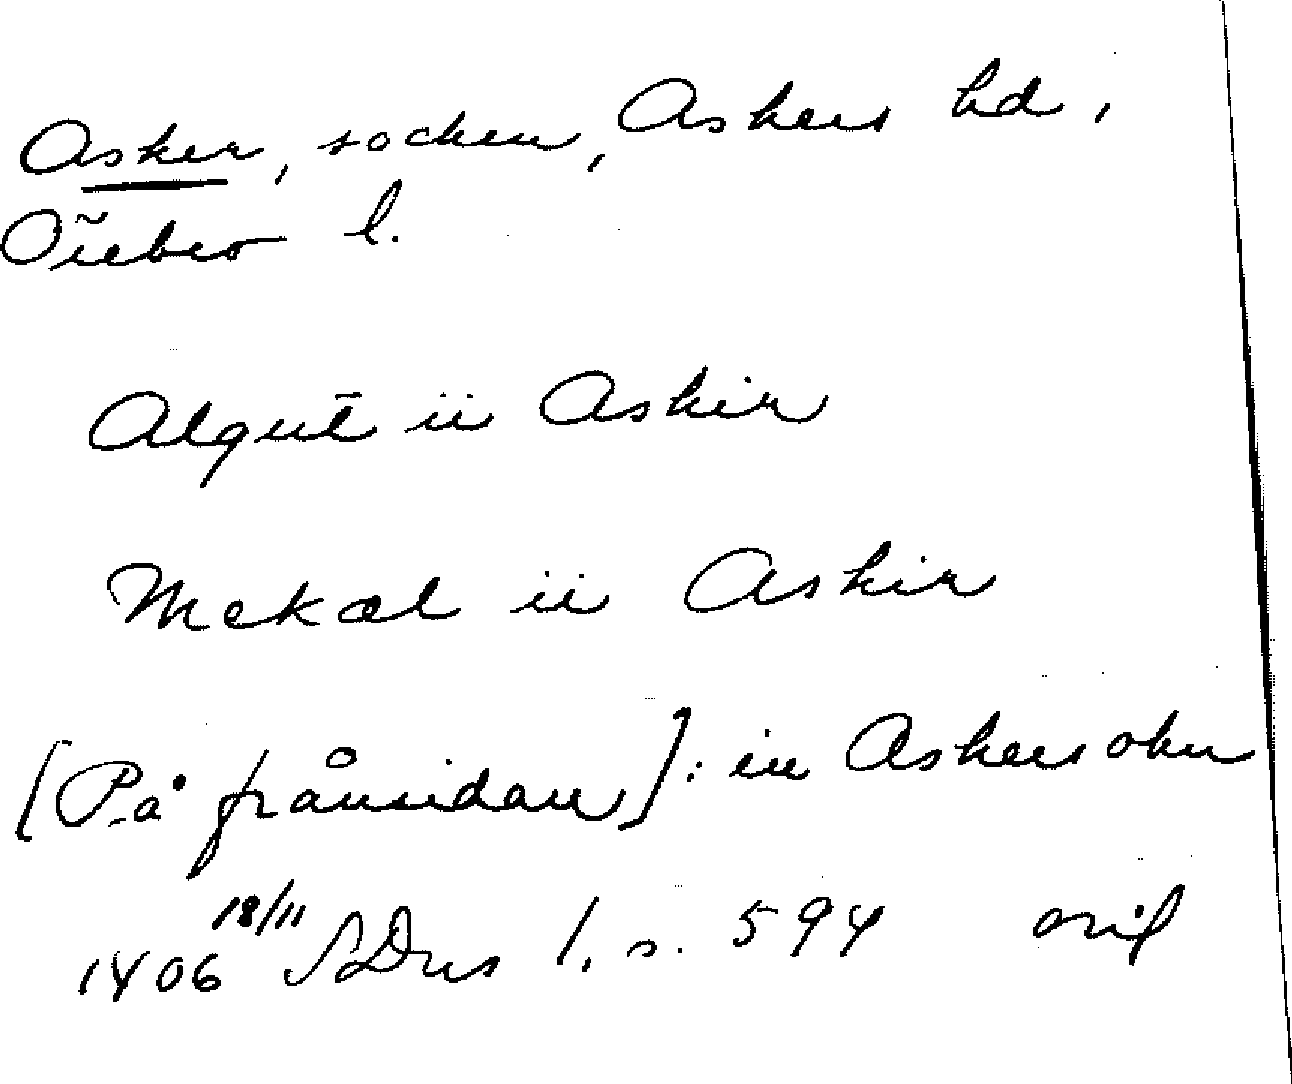 Asker, socken, Askers hd,
Örebro l.
Algut i Askir
Mekæl i Askir
[På frånsidan]: in Askers okn
1406 18/11 SDns 1, s. 594 orig